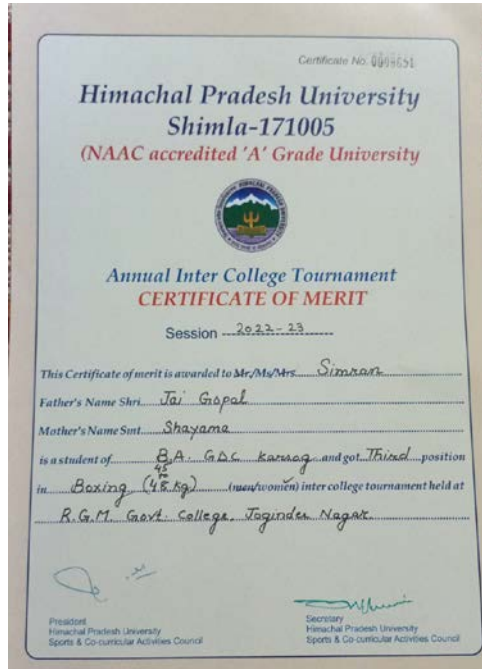 Certificate No. 0009651
Himachal Pradesh University
Shimla-171005
(NAAC accredited 'A' Grade University
Annual Inter College Tournament
CERTIFICATE OF MERIT
Session 2022-23
This Certificate of merit is awarded to Mr/Ms/Mrs. Simran
Father's Name Shri. Jai Gopal
Mother's Name Smt. Shayama
is a student of B.A. GDC Karsog and got Third position
in Boxing (45 to 48 kg) (men/women) inter college tournament held at
R.G.M. Govt. College, Joginder Nagar.
President
Himachal Pradesh University
Sports & Co-curricular Activities Council
Secretary
Himachal Pradesh University
Sports & Co-curricular Activities Council